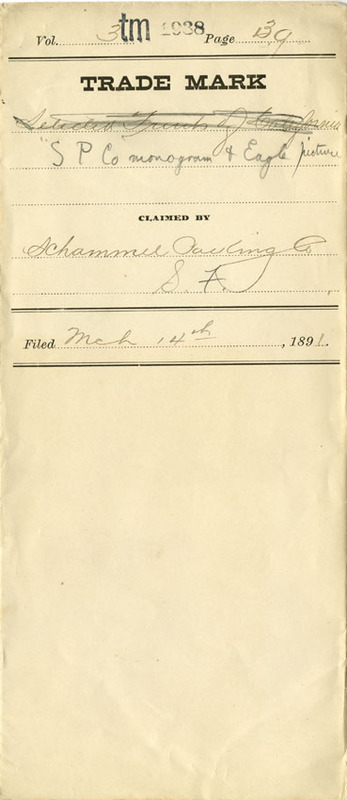 Vol. 3 tm 1938 Page 139
TRADE MARK
Selected Fruits of California
"S P Co monogram & Eagle picture
CLAIMED BY
Schammel Packing Co
S. F.
Filed Mch 14th, 1891.